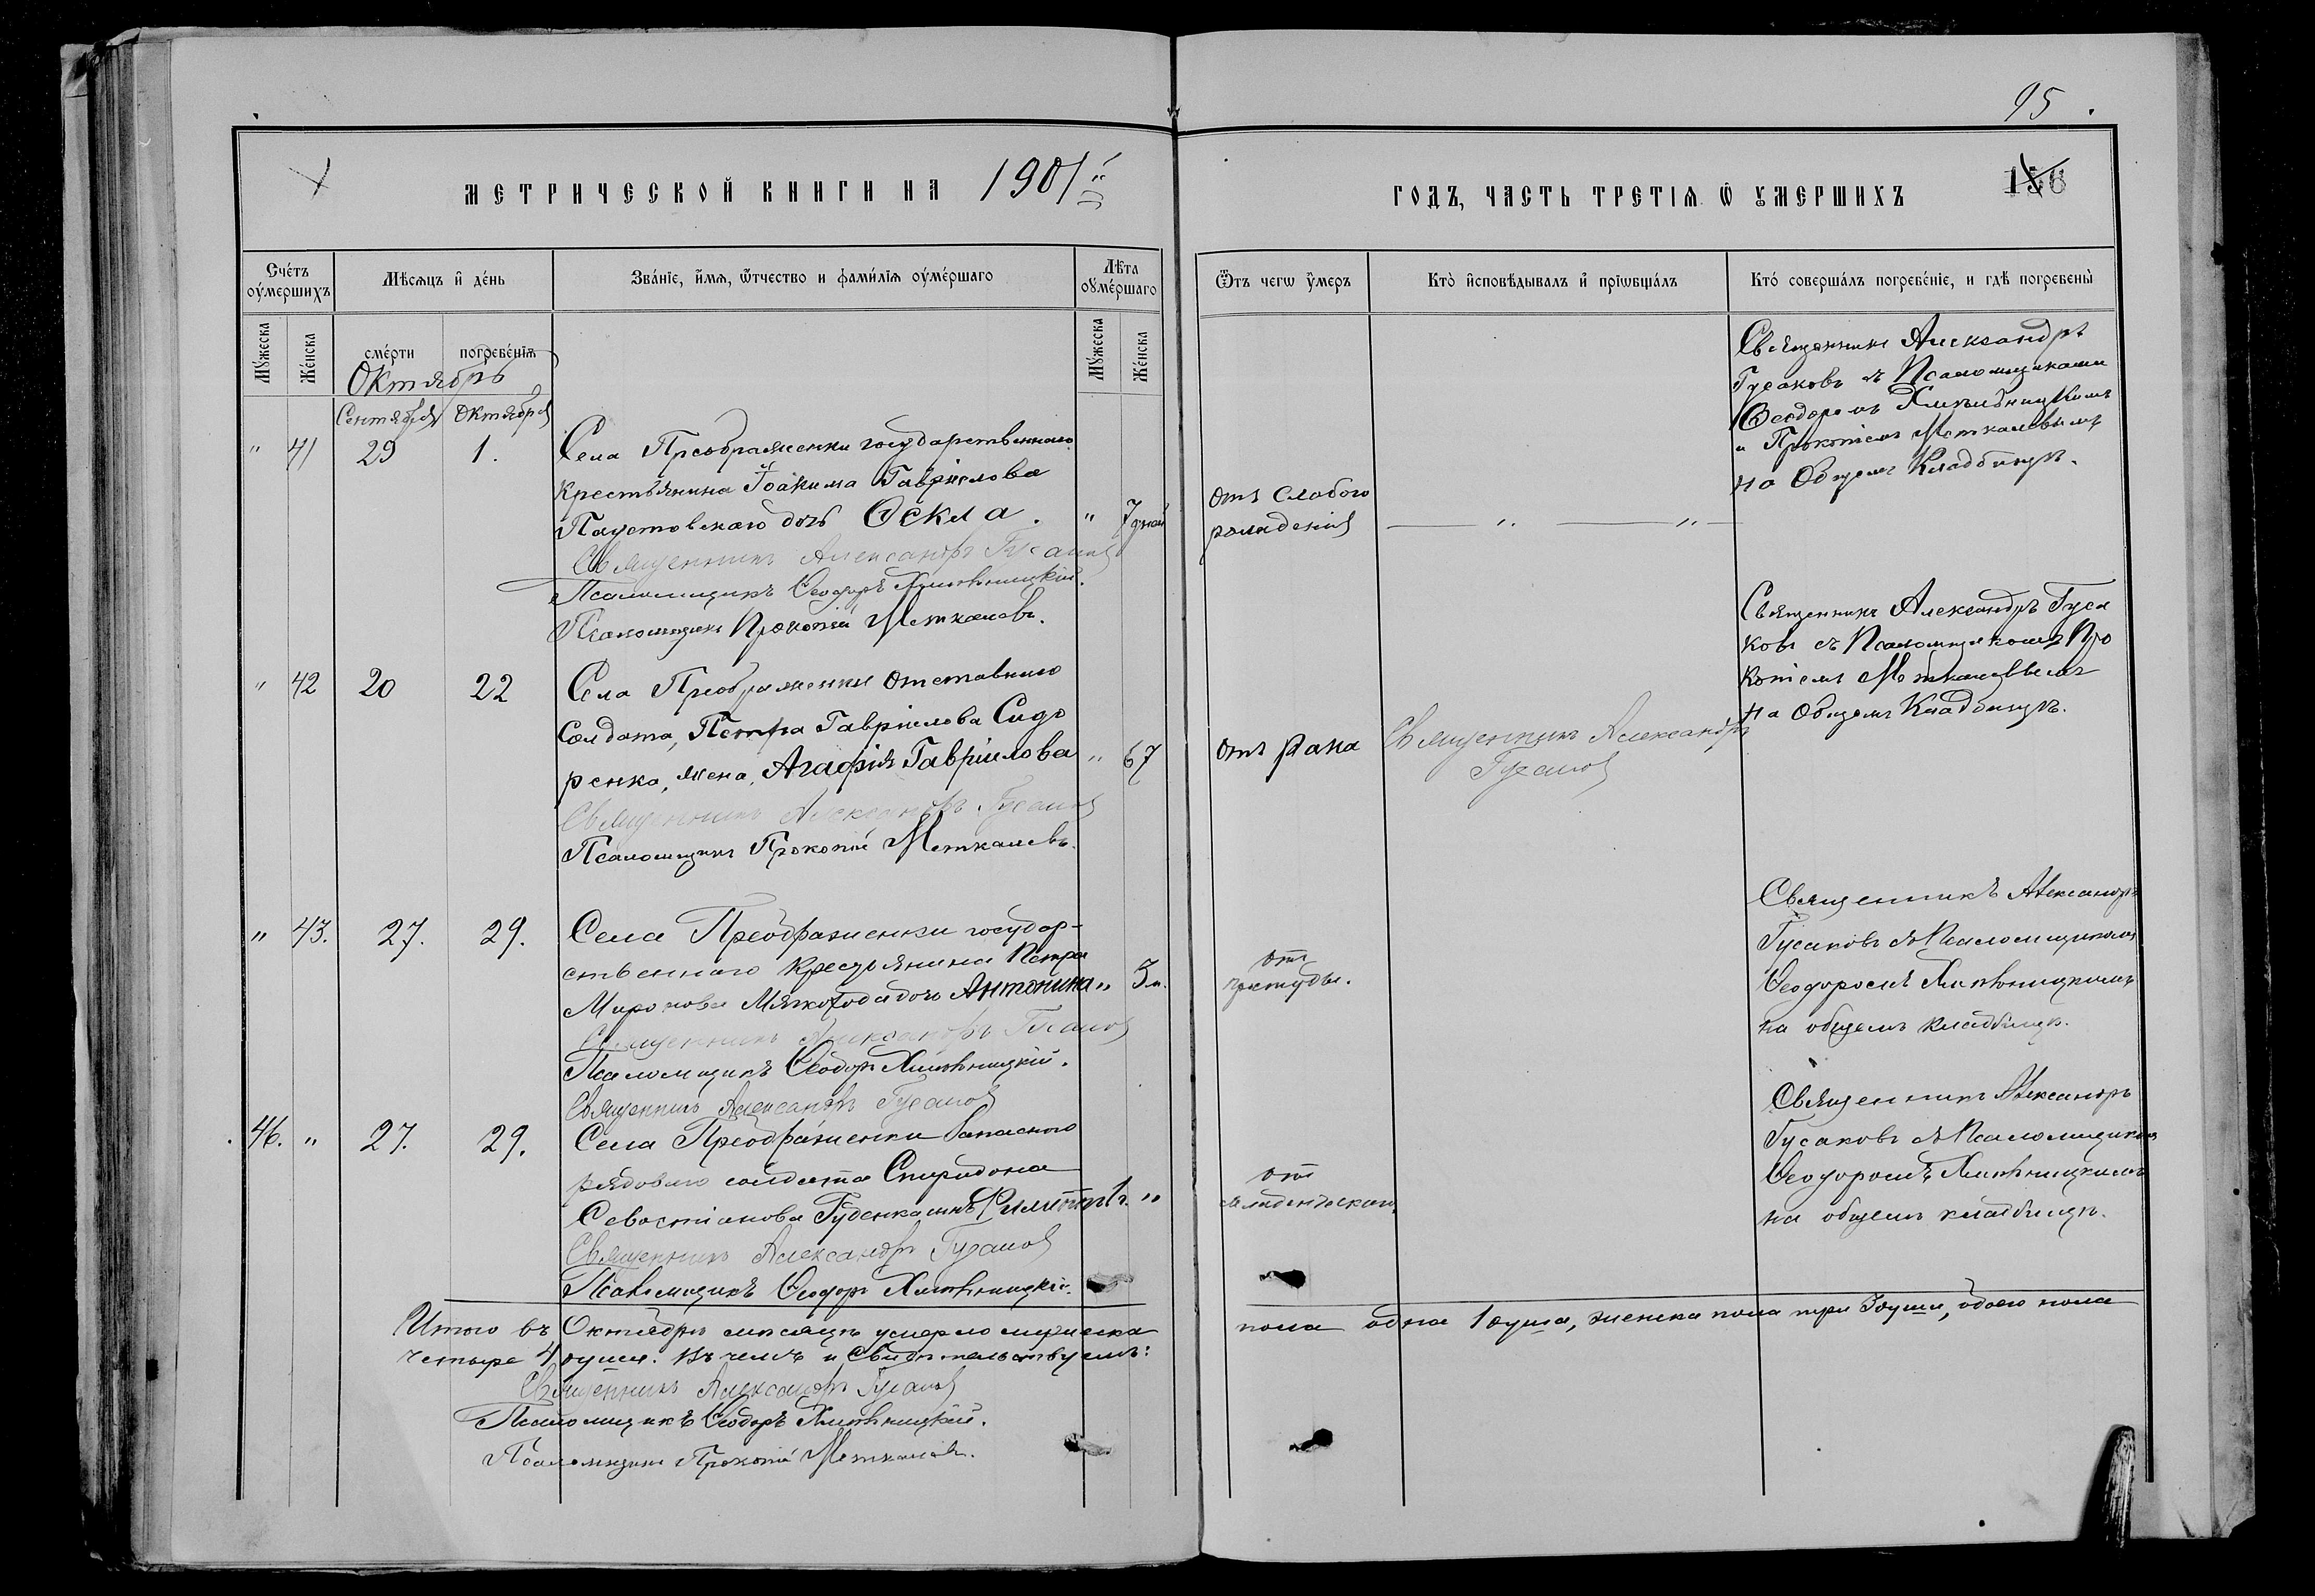 95
МЕТРИЧЕСКОЙ КНИГИ НА 1901й
ГОДЪ, ЧАСТЬ ТРЕТІѦ Ѿ УМЕРШИХЪ
156
Счéтъ оу҆мершихъ
Мѣсѧцъ и҆ дéнь
Звáніе, и҆́мѧ, ѻ҆́тчество и фами́лїѧ оу҆мéршаго
Лѣ̑та оу҆мéршаго
Ѿ чегѡ у҆́меръ
Ктò и҆сповѣ́дывалъ и҆ прїѡбщáлъ
Ктó совершáлъ погребéніе, и гдѣ̀ погребены̀
Мꙋ́жеска
Жéнска
смéрти
погребéнїѧ
Мꙋ́жеска
Жéнска
Октябрь
Сентября Октября
" 41 29 1.
Села Преображенки государственнаго
крестьянина Іоакима Гавріилова
Паустовскаго дочь Ѳекла. " 7 дней
Священникъ Александръ Гусаков
Псаломщикъ Ѳеодоръ Хмѣльницкій.
Псаломщикъ Прокопій Меткалевъ.
отъ слабого
рожденія
Священникъ Александръ
Гусаковъ съ Псаломщиками
Ѳеодоромъ Хмѣльницкимъ
и Прокопіемъ Меткалевымъ
на Общемъ Кладбищѣ.
" 42 20 22
Села Преображенки отставного
Солдата, Петра Гавріилова Сидо
ренка, жена, Агафія Гавріилова " 67
Священникъ Александръ Гусаков
Псаломщикъ Прокопій Меткалевъ.
отъ рака
Священникъ Александръ
Гусаков
Священникъ Александръ Гуса
ковъ съ Псаломщикомъ Про
копіемъ Меткалевымъ
на Общемъ Кладбищѣ.
" 43. 27. 29.
Села Преображенки государ-
ственнаго крестьянина Петра
Миронова Мягкохода дочь Антонина "
Священникъ Александръ Гусаков
Псаломщикъ Ѳеодоръ Хмѣльницкій.
Священникъ Александръ Гусаков
отъ
простуды.
Священникъ Александръ
Гусаковъ съ Псаломщикомъ
Ѳеодоромъ Хмѣльницкимъ
на общемъ кладбищѣ.
46. " 27. 29.
Села Преображенки Запасного
рядового солдата Спиридона
Севостіанова Гуденка сынъ Филиппъ 1г. "
Священникъ Александръ Гусаков
Псаломщикъ Ѳеодоръ Хмѣльницкій.
отъ
младенческой
Священникъ Александръ
Гусаковъ съ Псаломщикомъ
Ѳеодоромъ Хмѣльницкимъ
на общемъ кладбищѣ.
Итого въ Октябрѣ мѣсяцѣ умерло мужеска пола одна 1 душа, женска пола три 3 души, обоего пола
четыре 4 души. Въ чемъ и свидѣтельствуемъ:
Священникъ Александръ Гусаков
Псаломщикъ Ѳеодоръ Хмѣльницкій.
Псаломщикъ Прокопій Меткалевъ.